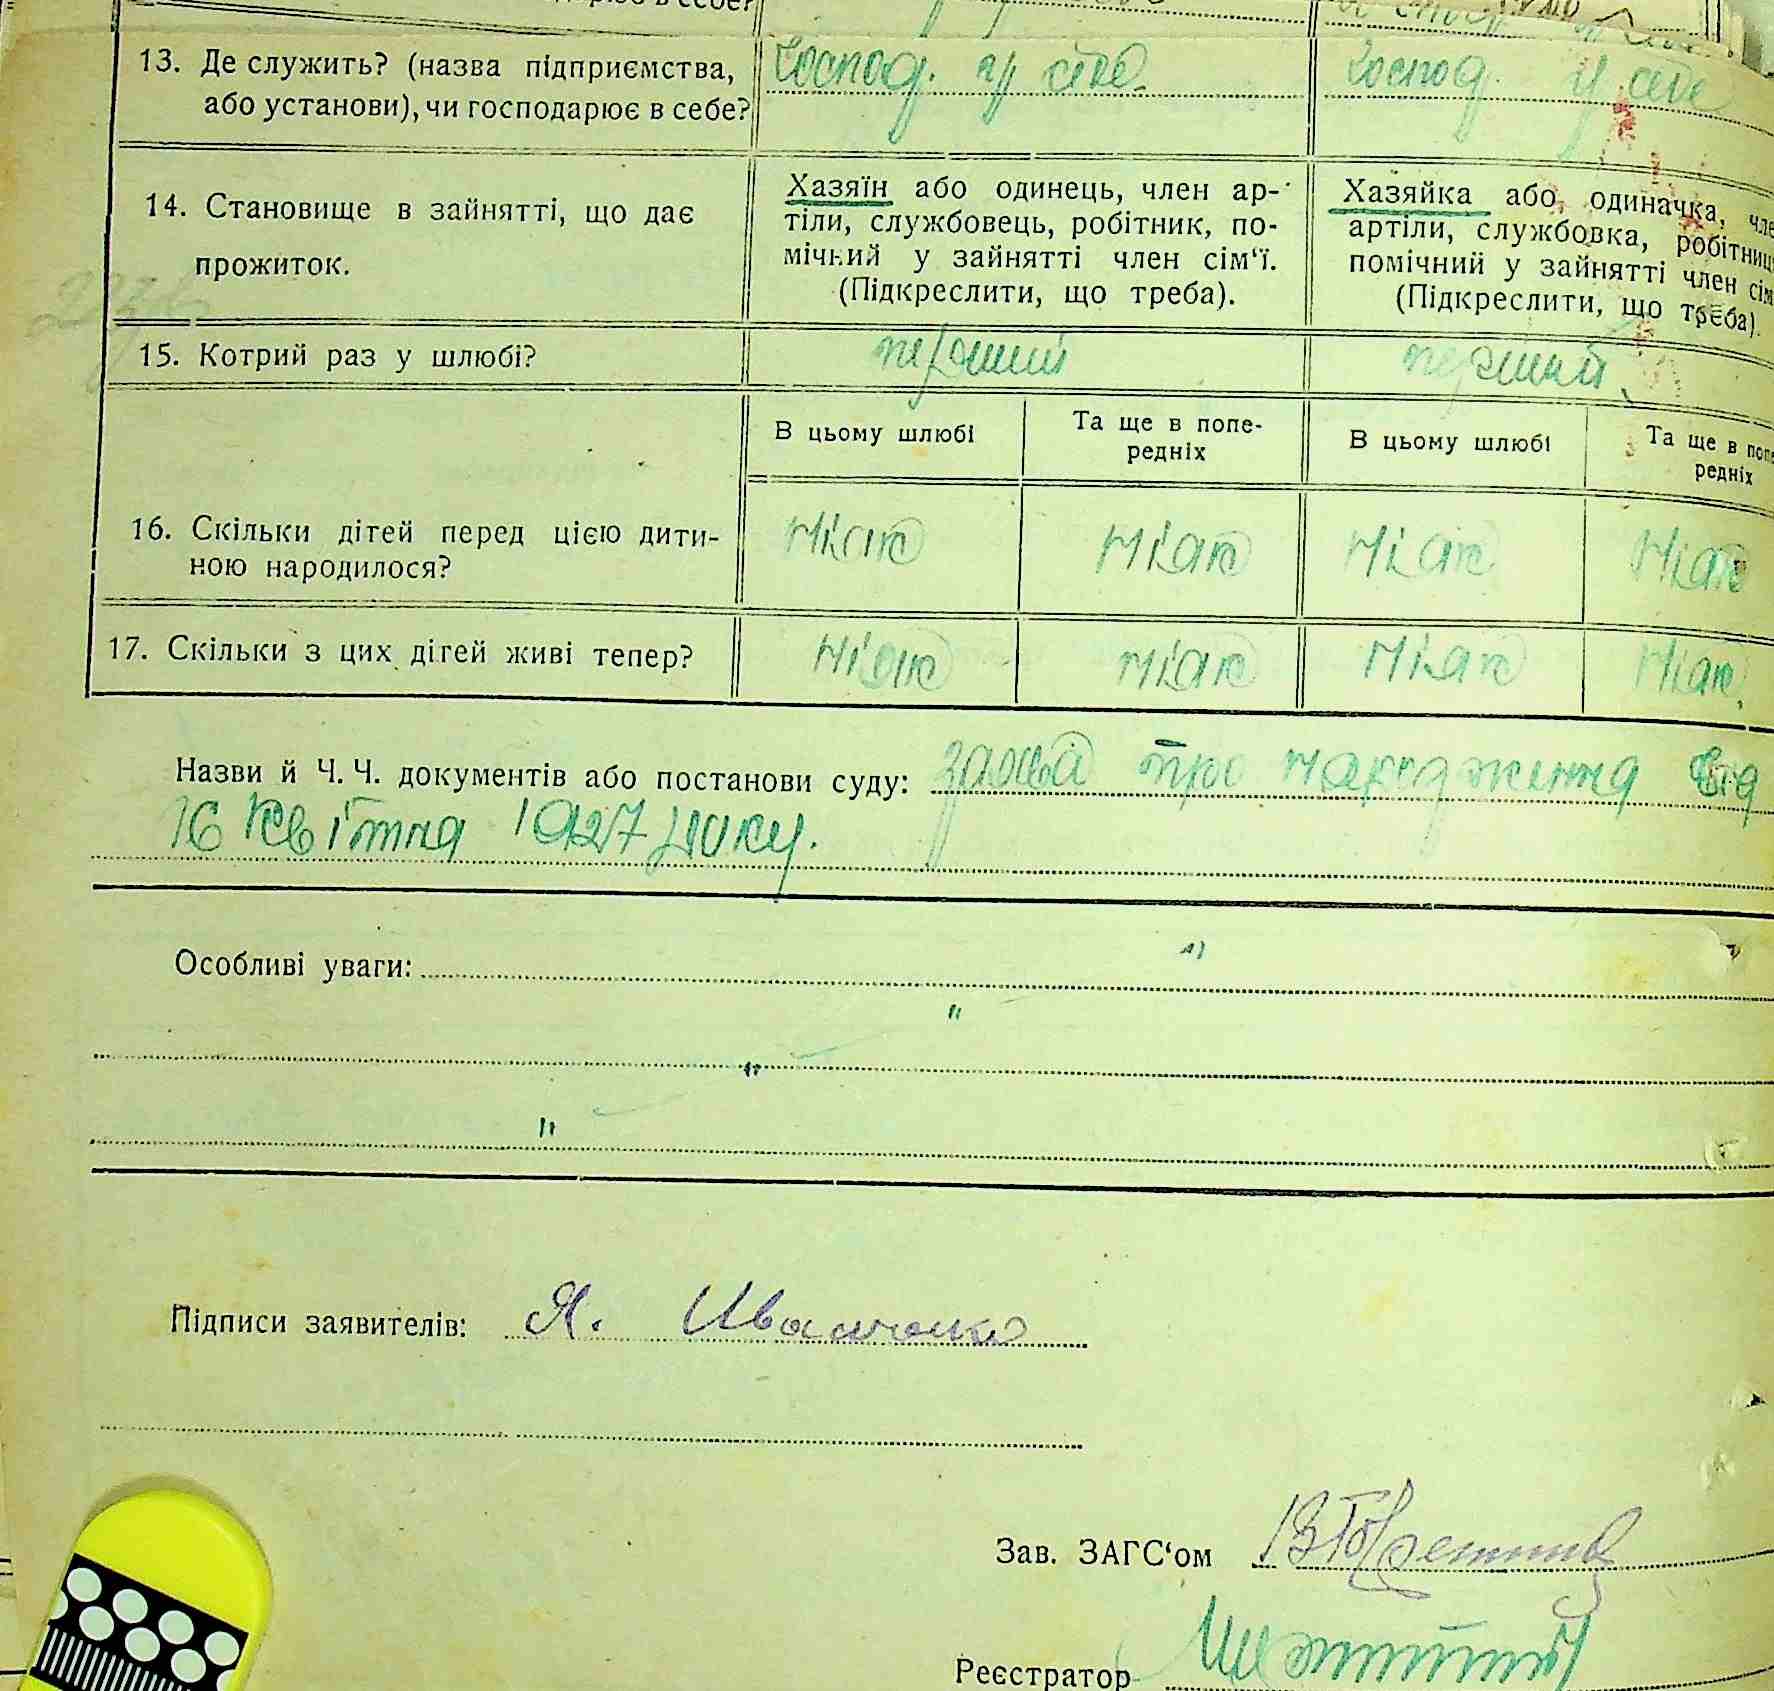 13. Де служить? (назва підприємства, або установи), чи господарює в себе? Господ. у себе Господ. у себе
14. Становище в зайнятті, що дає прожиток.
Хазяїн або одинець, член ар-
тіли, службовець, робітник, по-
мічний у зайнятті член сім‘ї.
(Підкреслити, що треба).
Хазяйка або одиначка, чле
артіли, службовка, робітниц
помічний у зайнятті член сім
(Підкреслити, що треба).
15. Котрий раз у шлюбі? перший перший
В цьому шлюбі Та ще в попе-
редніх В цьому шлюбі Та ще в попе
редніх
16. Скільки дітей перед цією дити-
ною народилося?
17. Скільки з цих дітей живі тепер?
Назви й Ч. Ч. документів або постанови суду: заява про народження від
16 квітня 1927 року.
Особливі уваги:
"
"
"
Підписи заявителів: Я. Иванченко
Зав. ЗАГС‘ом
Реєстратор